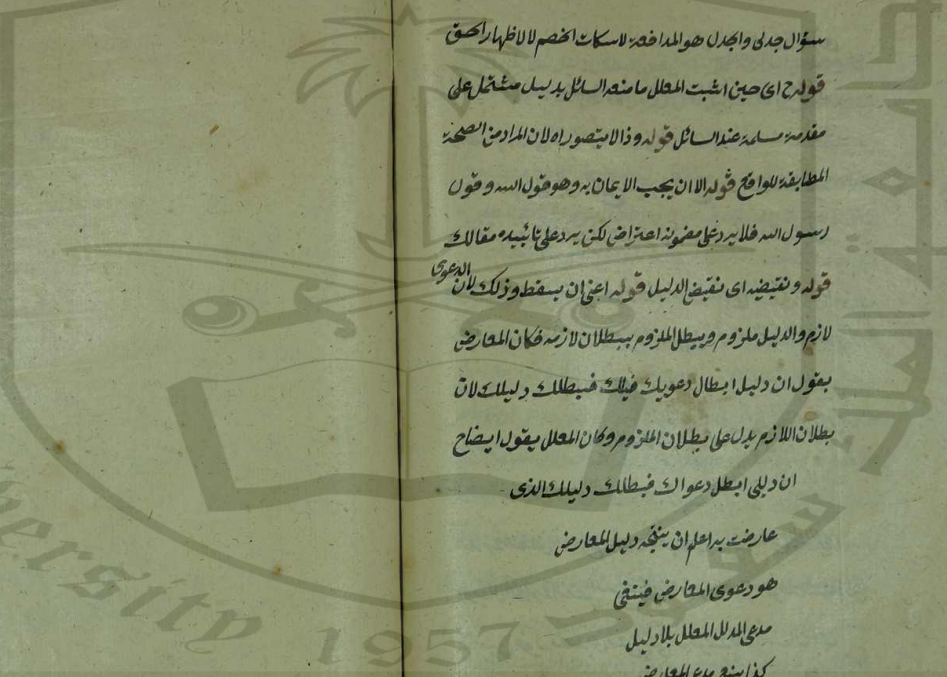 سؤال جدلى والجدل هو المدافعة لاسكات الخصم لا لاظهار الحق
قوله ح اى حين اثبت المعلل ما منعه السائل بدليل مشتمل على
مقدمة مسلمة عند السائل قوله وذا لا يتصور اه لان المراد من الصحة
المطابقة للواقع قوله الا ان يجب الايمان به وهو قول الله وقول
رسول الله فلا يرد على مضمونه اعتراض لكن يرد على تأييده مقالك
قوله ونقيضه اى نقيض الدليل قوله اعنى ان يسقط وذلك لان الدعوى
لازم والدليل ملزوم ويبطل الملزوم ببطلان لازمه فكان المعارض
يقول ان دليل ابطال دعويك فبطلك دليلك لان
بطلان اللازم يدل على بطلان الملزوم وكان المعلل يقول ايضا
ان دليلى ابطل دعواك فبطلك دليلك الذى
عارضت به اعلم ان ينتجه دليل المعارض
هو دعوى المعارض فينتفى
مدعى المدلل المعلل بلا دليل
كذا مدعى المعارض
University 1957